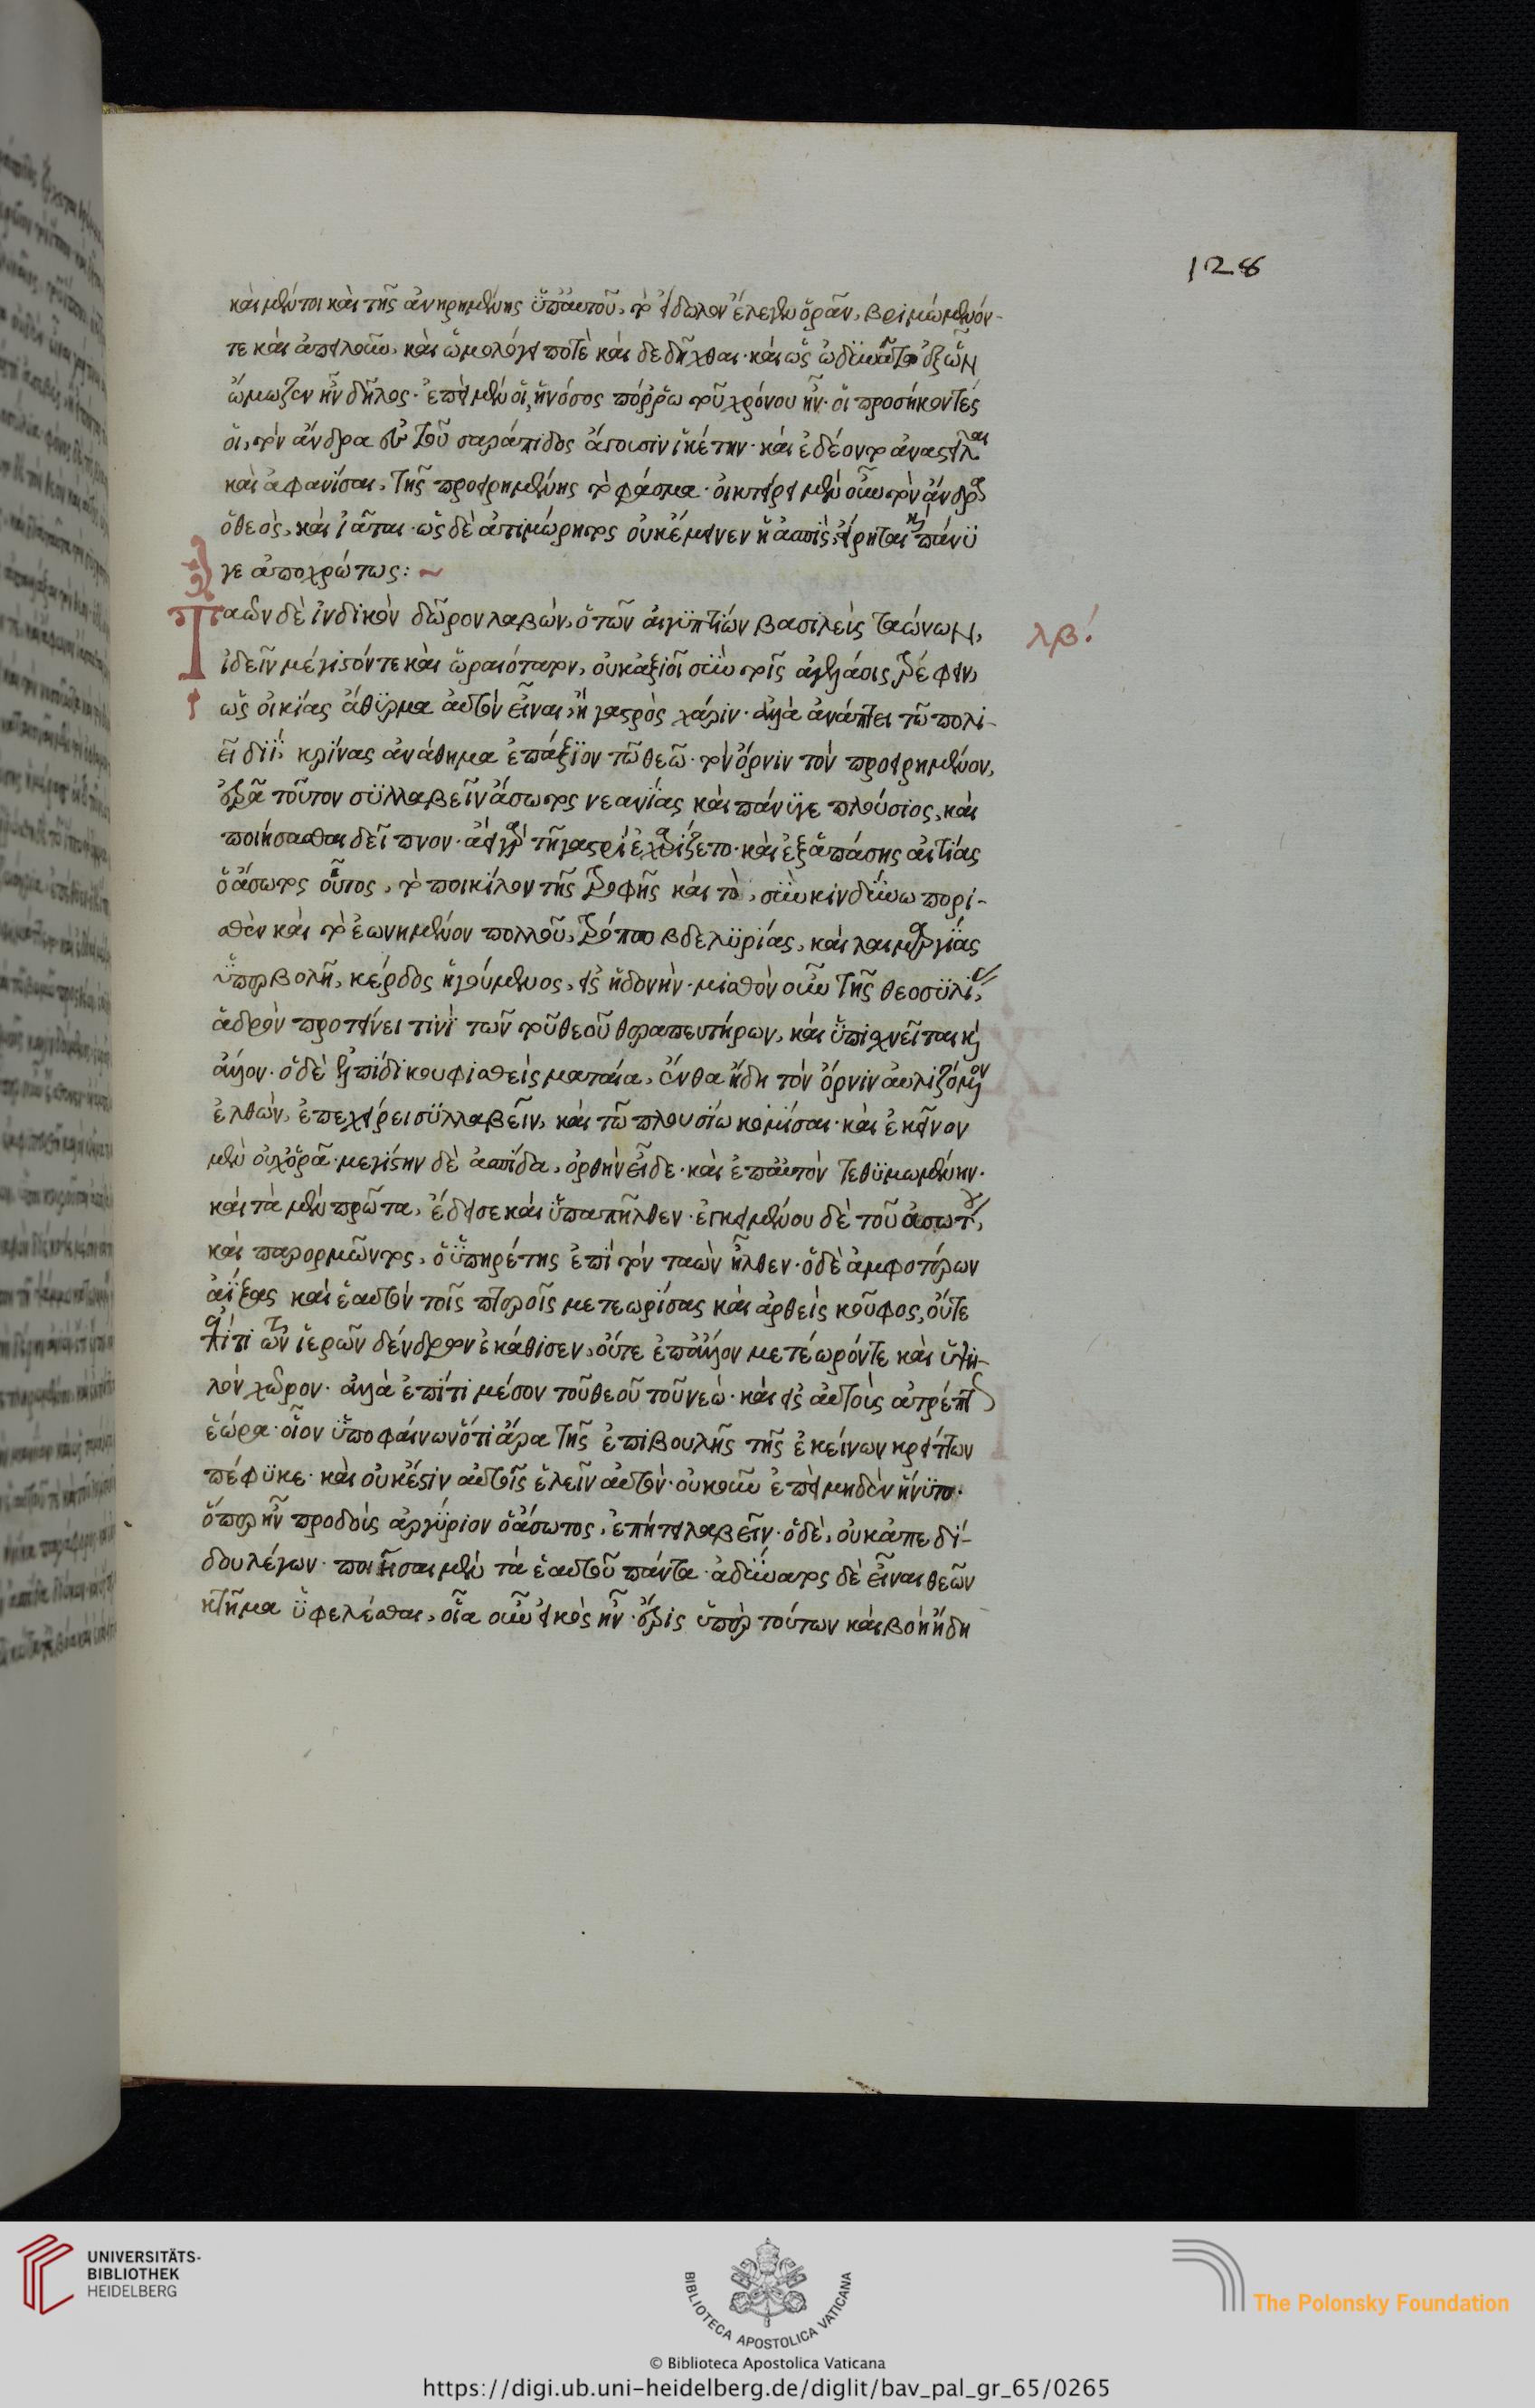 128
καὶ μέντοι καὶ τῆς ἀνηρημένης ὑπ' αὐτοῦ, τὸ εἴδωλον ἔλεγεν ὁρᾶν, βριμώμενόν-
τε καὶ ἀπειλοῦν, καὶ ὡμολόγει ποτὲ καὶ δεδῆχθαι· καὶ ὡς
ᾤμωζεν ἦν δῆλος· ἐπεὶ μὲν οἱ, ἡ νόσος πόρρω τοῦ χρόνου ἦν· οἱ προσήκοντές
οἱ, τὸν ἄνδρα τοῦ σαράπιδος ἄγουσιν ἱκέτην· καὶ ἐδέοντο ἀναστεῖλαι
καὶ ἀφανίσαι, τῆς προειρημένης τὸ φάσμα· οἰκτείρει μὲν οὖν τὸν ἄνδρα
ὁ θεὸς, καὶ ἰᾶται· ὡς δὲ ἀτιμώρητος οὐκ ἔμεινεν ἡ ἀσπὶς, εἴρηται καὶ πάνυ
γε ἀποχρώντως:
Ταὼν δὲ ἰνδικὸν δῶρον λαβὼν, ὁ τῶν αἰγυπτίων βασιλεὺς ταώνων,
λβ'
ἰδεῖν μέγιστόν τε καὶ ὡραιότατον, οὐκ ἀξιοῖ σὺν τοῖς ἀγελαίοις τρέφειν,
ὡς οἰκίας ἄθυρμα αὐτὸν εἶναι, ἢ γαστρὸς χάριν· ἀλλὰ ἀνάπτει τῷ πολι-
εῖ διὶ, κρίνας ἀνάθημα ἐπάξιον τῷ θεῷ· τὸν ὄρνιν τὸν προειρημένον,
ἐρᾷ τοῦτον συλλαβεῖν ἄσωτος νεανίας καὶ πάνυ γε πλούσιος, καὶ
ποιήσασθαι δεῖπνον· ἀεὶ γὰρ τῇ γαστρὶ ἐχαρίζετο· καὶ ἐξ ἁπάσης αἰτίας
ὁ ἄσωτος οὗτος, τὸ ποικίλον τῆς τροφῆς καὶ τὸ, σὺν κινδύνῳ πορι-
σθὲν καὶ τὸ ἐωνημένον πολλοῦ, τρόπου βδελυρίας, καὶ λαιμαργίας
ὑπερβολῇ, κέρδος ἡγούμενος, εἰς ἡδονὴν· μισθὸν οὖν τῆς θεοσυλίας,
ἁδρὸν προτείνει τινὶ τῶν τοῦ θεοῦ θεραπευτήρων, καὶ ὑπισχνεῖται καὶ
ἄλλον· ὁ δὲ ἐλπίδι κουφισθεὶς ματαία, ἔνθα ᾔδει τὸν ὄρνιν αὐλιζόμενον
ἐλθὼν, ἐπεχείρει συλλαβεῖν, καὶ τῷ πλουσίῳ κομίσαι· καὶ ἐκεῖνον
μὲν οὐχ ὁρᾷ· μεγίστην δὲ ἀσπίδα, ὀρθὴν εἶδε· καὶ ἐπ' αὐτὸν τεθυμωμένην·
καὶ τὰ μὲν πρῶτα, ἔδεισε καὶ ὑπαπῆλθεν· ἐγκειμένου δὲ τοῦ ἀσώτου,
καὶ παρορμῶντος, ὁ ὑπηρέτης ἐπὶ τὸν ταὼν ἦλθεν· ὁ δὲ ἀμφοτέρων
ἀίξας καὶ ἑαυτὸν τοῖς πτεροῖς μετεωρίσας καὶ ἀρθεὶς κοῦφος, οὔτε
ἐπί τι τῶν ἱερῶν δένδρων ἐκάθισεν, οὔτε ἐπ' ἄλλον μετέωρόν τε καὶ ὑψη-
λὸν χῶρον· ἀλλὰ ἐπί τι μέσον τοῦ θεοῦ τοῦ νεώ· καὶ εἰς αὐτοὺς ἀτρέπτως
ἑώρα· οἷον ὑποφαίνων ὅτι ἄρα τῆς ἐπιβουλῆς τῆς ἐκείνων κρείττων
πέφυκε· καὶ οὐκ ἔστιν αὐτοῖς ἑλεῖν αὐτόν· οὐκοῦν ἐπεὶ μηδὲν ἤνυτο·
ὅπερ ἦν προδοὺς ἀργύριον ὁ ἄσωτος, ἐπῄτει λαβεῖν· ὁ δὲ, οὐκ ἀπεδί-
δου λέγων· ποιῆσαι μὲν τὰ ἑαυτοῦ πάντα· ἀδύνατος δὲ εἶναι θεῶν
κτῆμα ὑφελέσθαι, οἷα οὖν εἰκὸς ἦν· ἔρις ὑπὲρ τούτων καὶ βοὴ ἤδη
UNIVERSITÄTS-
BIBLIOTHEK
HEIDELBERG
BIBLIOTECA APOSTOLICA VATICANA
© Biblioteca Apostolica Vaticana
The Polonsky Foundation
https://digi.ub.uni-heidelberg.de/diglit/bav_pal_gr_65/0265